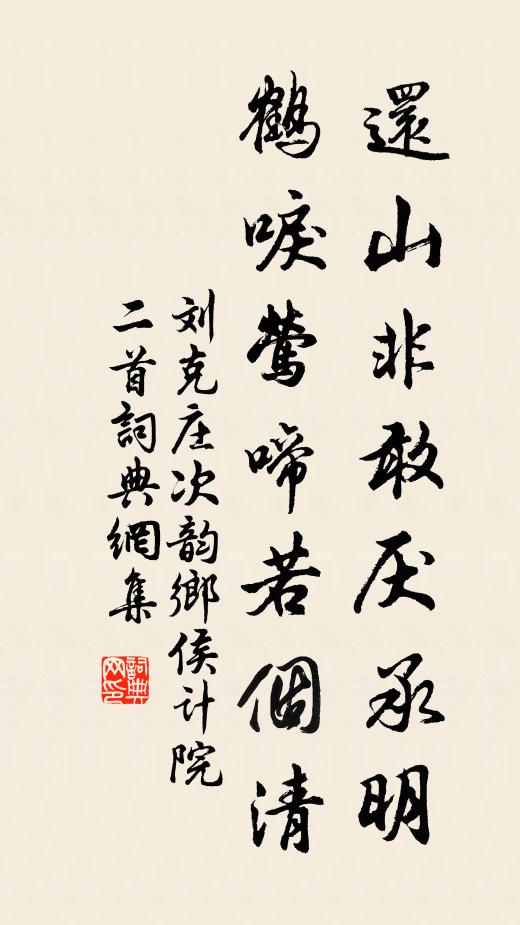 還山非敢厌承明
鹤唳莺啼若個清
刘克庄次韵鄉侯计院
二首詞典網集
詞典网印